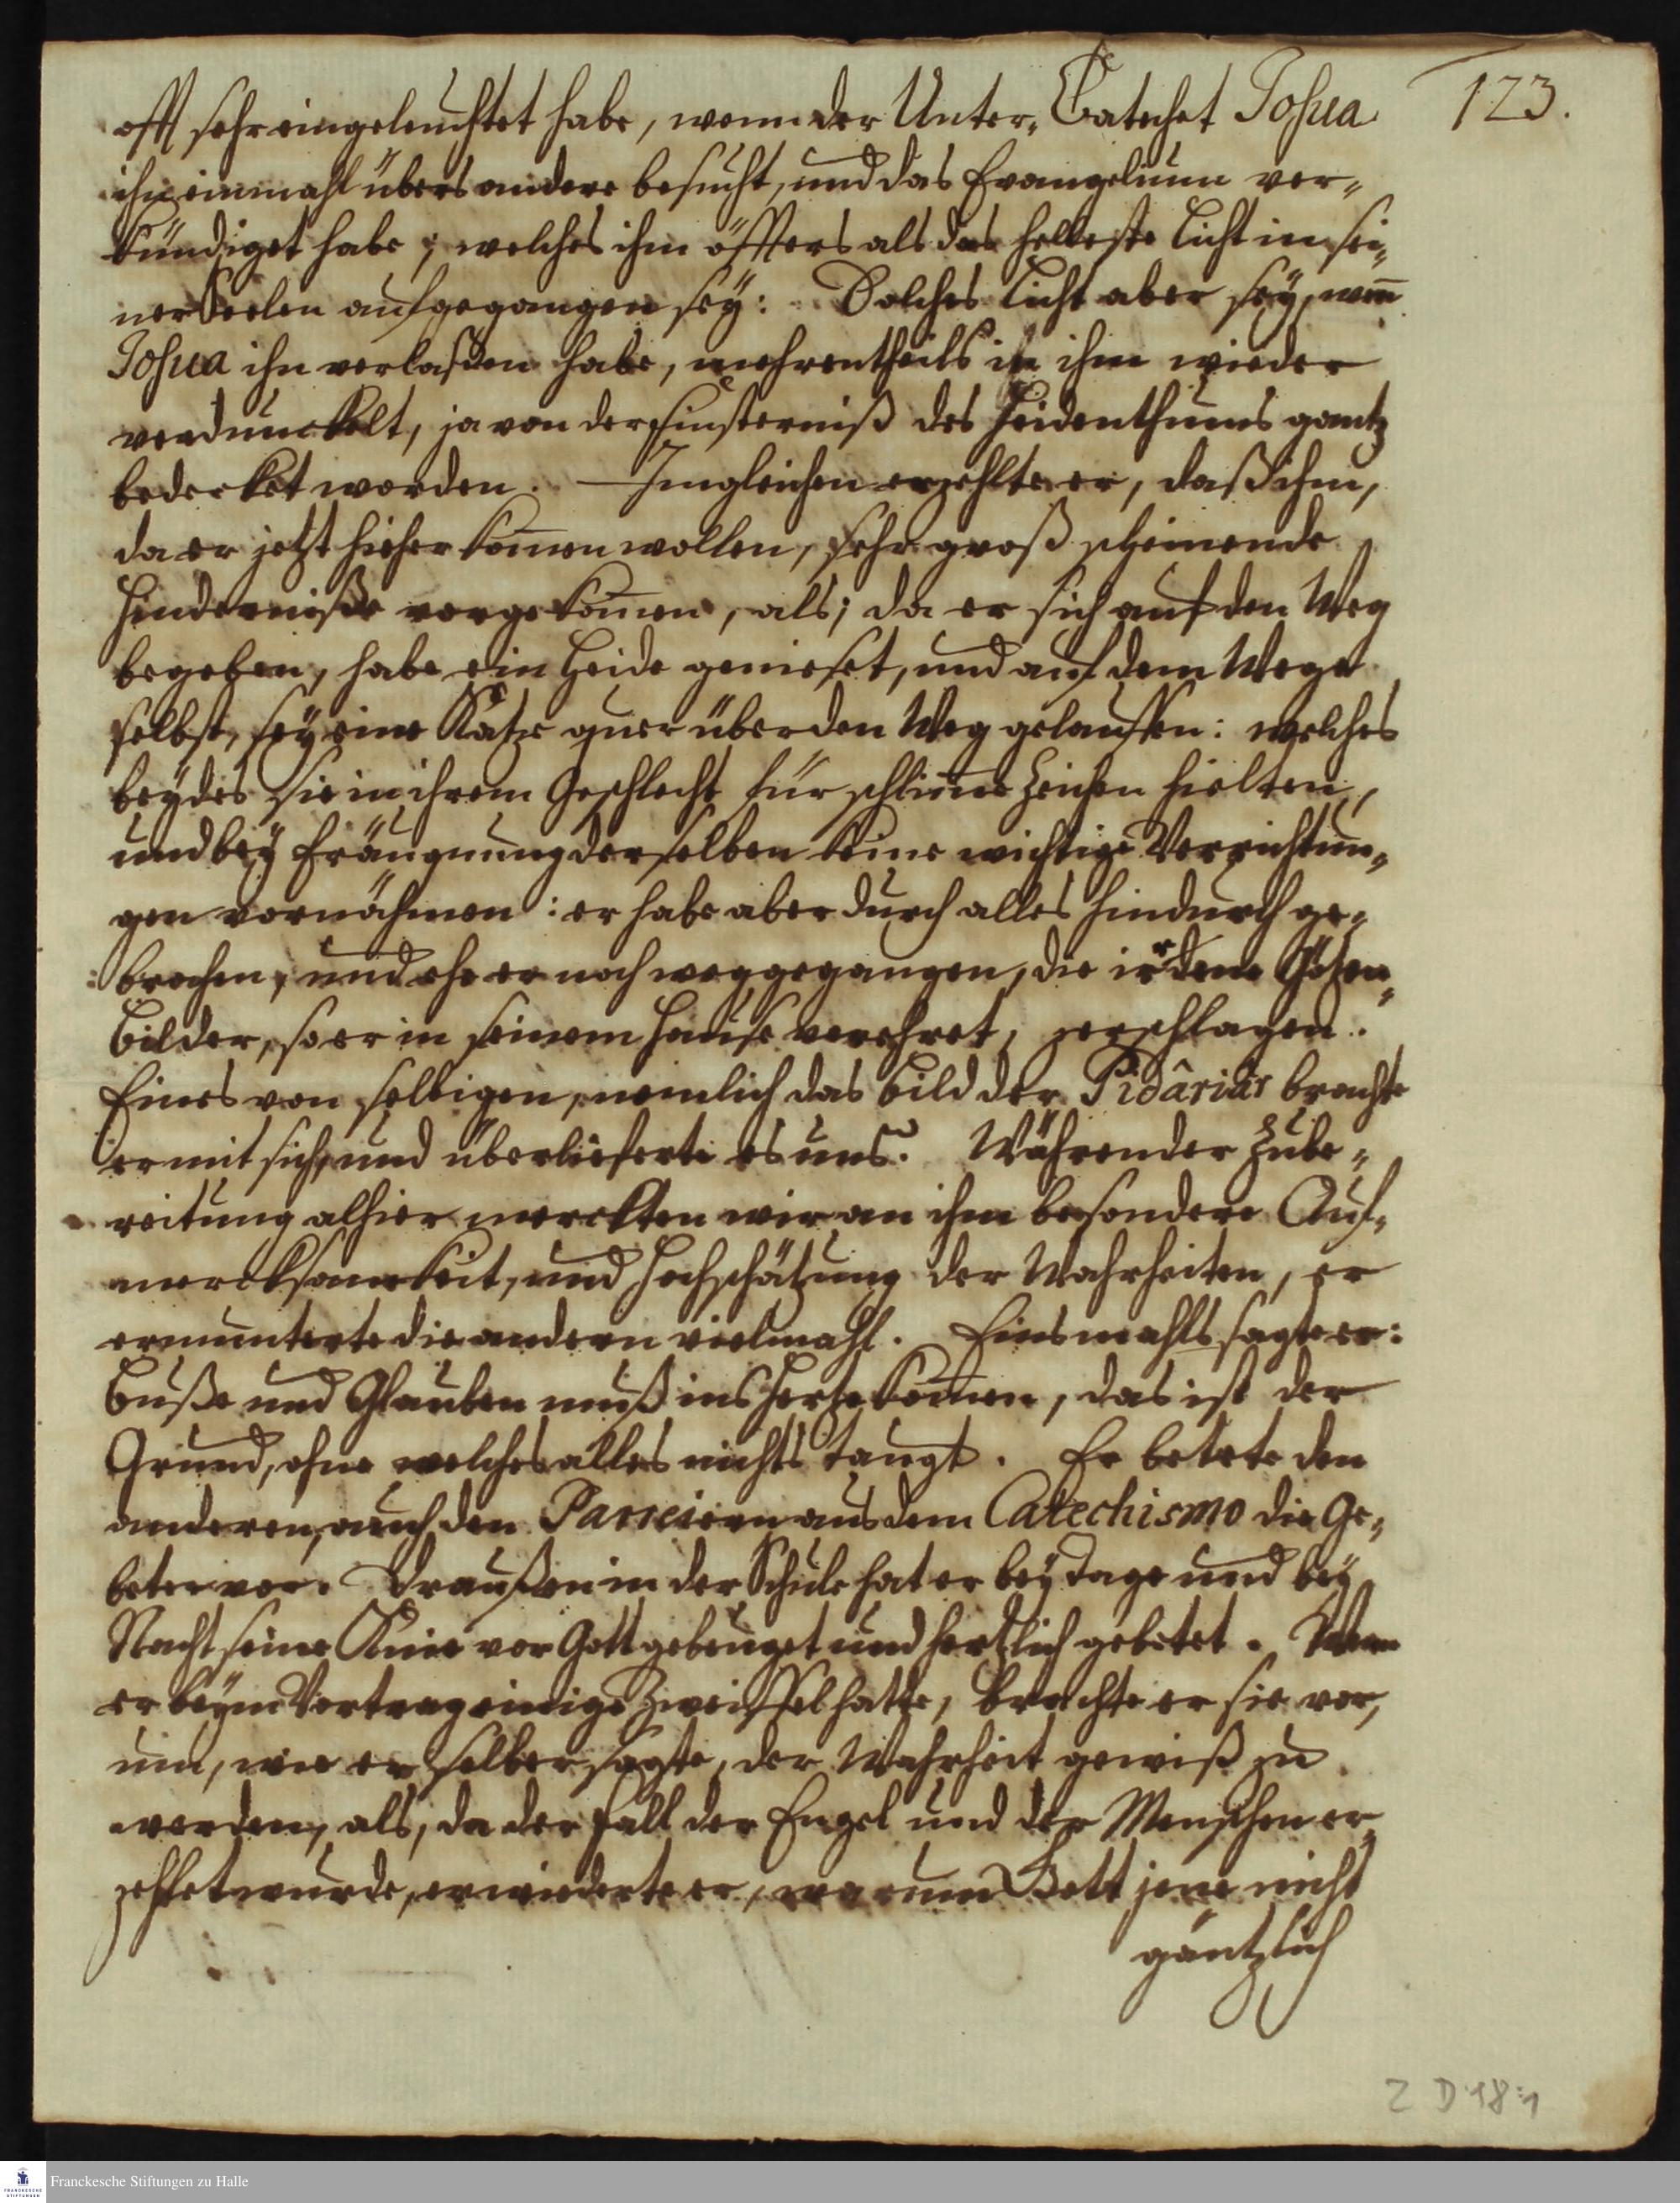 123.
offt sehr eingeleuchtet habe, wenn der Unter-Catechet Josua
ihn einmahl übers andere besucht, und das Evangelium ver-
kündiget habe; welches ihm öffters als das helleste Licht in sei-
ner Seelen aufgegangen sey: Solches Licht aber sey, wen̄
Josua ihn verlaßen habe, mehrentheils in ihm wieder
verdunckelt, ja von der Finsterniß des Heidenthums gantz
bedecket worden. Imgleichen erzehlte er, daß ihm,
da er jetzt hieher kom̄en wollen, sehr groß scheinende
Hinderniße vorgekom̄en, als; da er sich auf den Weg
begeben, habe ein Heide genieset, und auf dem Wege
selbst, sey eine Katze quer über den Weg gelauffen: welches
beydes sie in ihrem Geschlecht für schlim̄e Zeichen hielten,
und bey Eräugnung derselben keine wichtige Verrichtun-
gen vornähmen: er habe aber durch alles hindurch ge-
brochen, und ehe er noch weggegangen, die irdene Götzen-
bilder, so er in seinem Hause verehret, zerschlagen.
Eines von selbigen, nemlich das Bild der Pidâriar brachte
er mit sich, und überlieferte es uns. Während der Zube-
reitung alhier merckten wir an ihm besondere Auf-
mercksamkeit, und Hochschätzung der Wahrheiten, er
ermunterte die andern vielmahl. Einsmahls sagte er:
Buße und Glauben muß ins Hertze kom̄en, das ist der
Grund, ohne welches alles nichts taugt. Er betete den
anderen, auch den Parreiern aus dem Catechismo die Ge-
beter vor. Draußen in der Schule hat er bey Tage und bey
Nacht seine Knie vor Gott gebeuget und hertzlich gebetet. Wenn
er beym Vortrag einige Zweiffel hatte, brachte er sie vor,
um, wie er selber sagte, der Wahrheit gewiß zu
werden, als, da der Fall der Engel und der Menschen er-
zehlet wurde, erwiederte er, warum Gott jene nicht
gäntzlich
Z D 18:1
Franckesche Stiftungen zu Halle